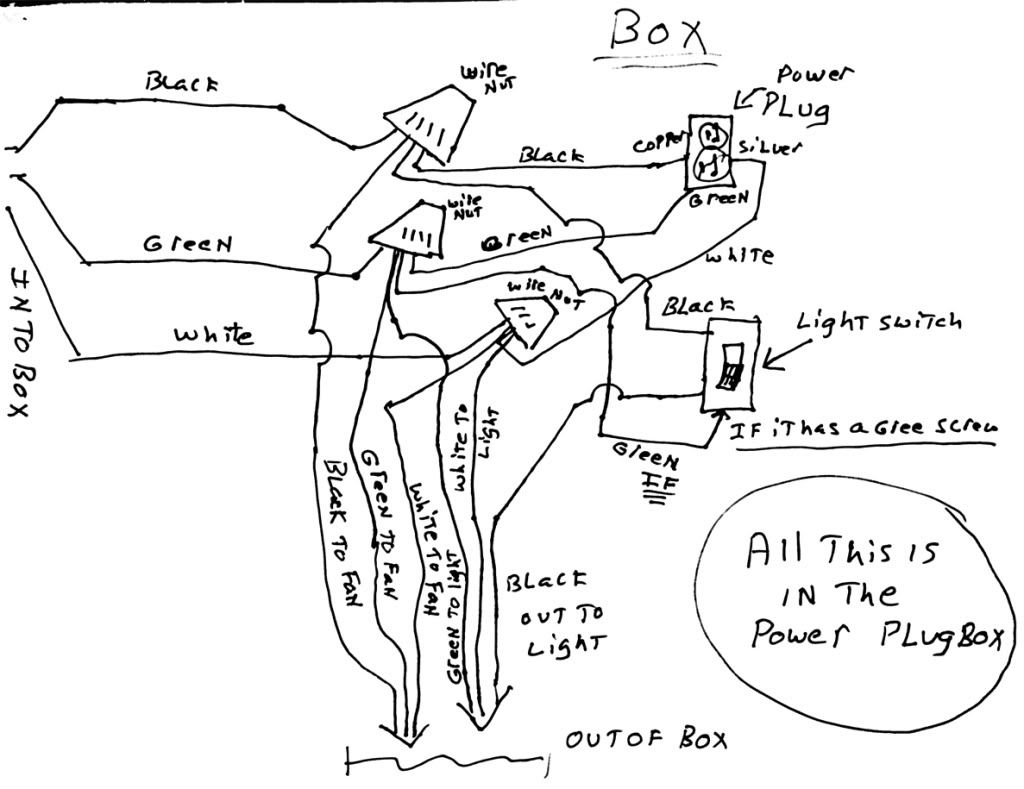 BOX
Power
PLUG
Black
wire
NUT
COPPER
SiLver
Black
GreeN
wire
NUT
GreeN
GreeN
white
wire NUT
Black
LigHT switch
White
IN TO BOX
IF iT has a Gree Screw
GreeN
IF
White To
Light
Black To FaN
GreeN To FaN
White To FaN
GreeN TO LigHT
BLACK
OUT TO
LigHT
All This is
iN The
Power PLugBox
OUT OF BOX